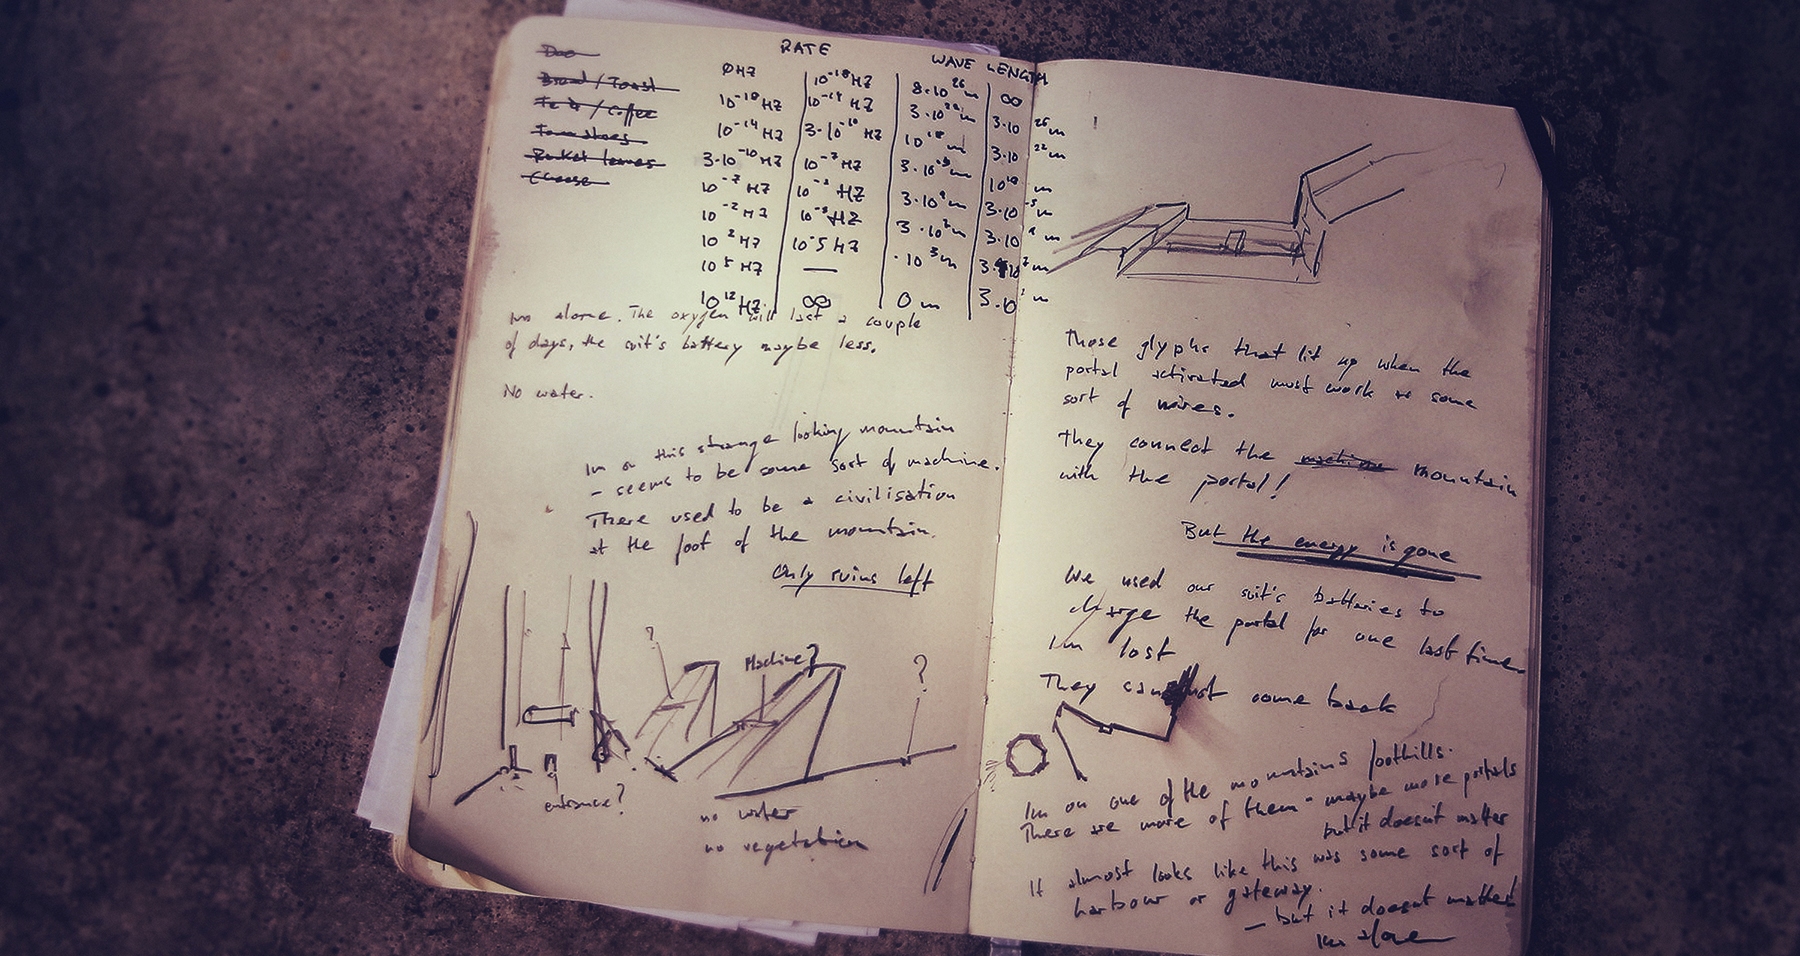 Bread / Toast
Tea / Coffee
Tomatoes
Rocket leaves
Cheese
RATE WAVE LENGTH
0HZ 10⁻¹⁸HZ 8·10²⁶m ∞
10⁻¹⁸HZ 10⁻¹⁴HZ 3·10²²m 3·10²⁶m
10⁻¹⁴HZ 3·10⁻¹⁰HZ 10¹⁸m 3·10²²m
3·10⁻¹⁰HZ 10⁻⁷HZ 10¹⁸m
10⁻⁷HZ 10⁻²HZ
10⁻²HZ
10²HZ 10⁻5HZ
10⁵HZ —
10¹²HZ ∞ 0m
Im alone. The oxygen will last a couple
of days, the suit's battery maybe less.
No water.
Im on this strange looking mountain
- seems to be some sort of machine.
There used to be a civilisation
at the foot of the mountain.
Only ruins left
?
Machine?
?
entrance?
no water
no vegetation
Those glyphs that lit up when the
portal activated must work as some
sort of wires.
They connect the machine mountain
with the portal!
But the energy is gone
We used our suit's batteries to
charge the portal for one last time
Im lost
They cannot come back
Im on one of the mountains foothills.
There are more of them - maybe more portals
but it doesn't matter
It almost looks like this was some sort of
harbour or gateway.
— but it doesnt matter
Im alone